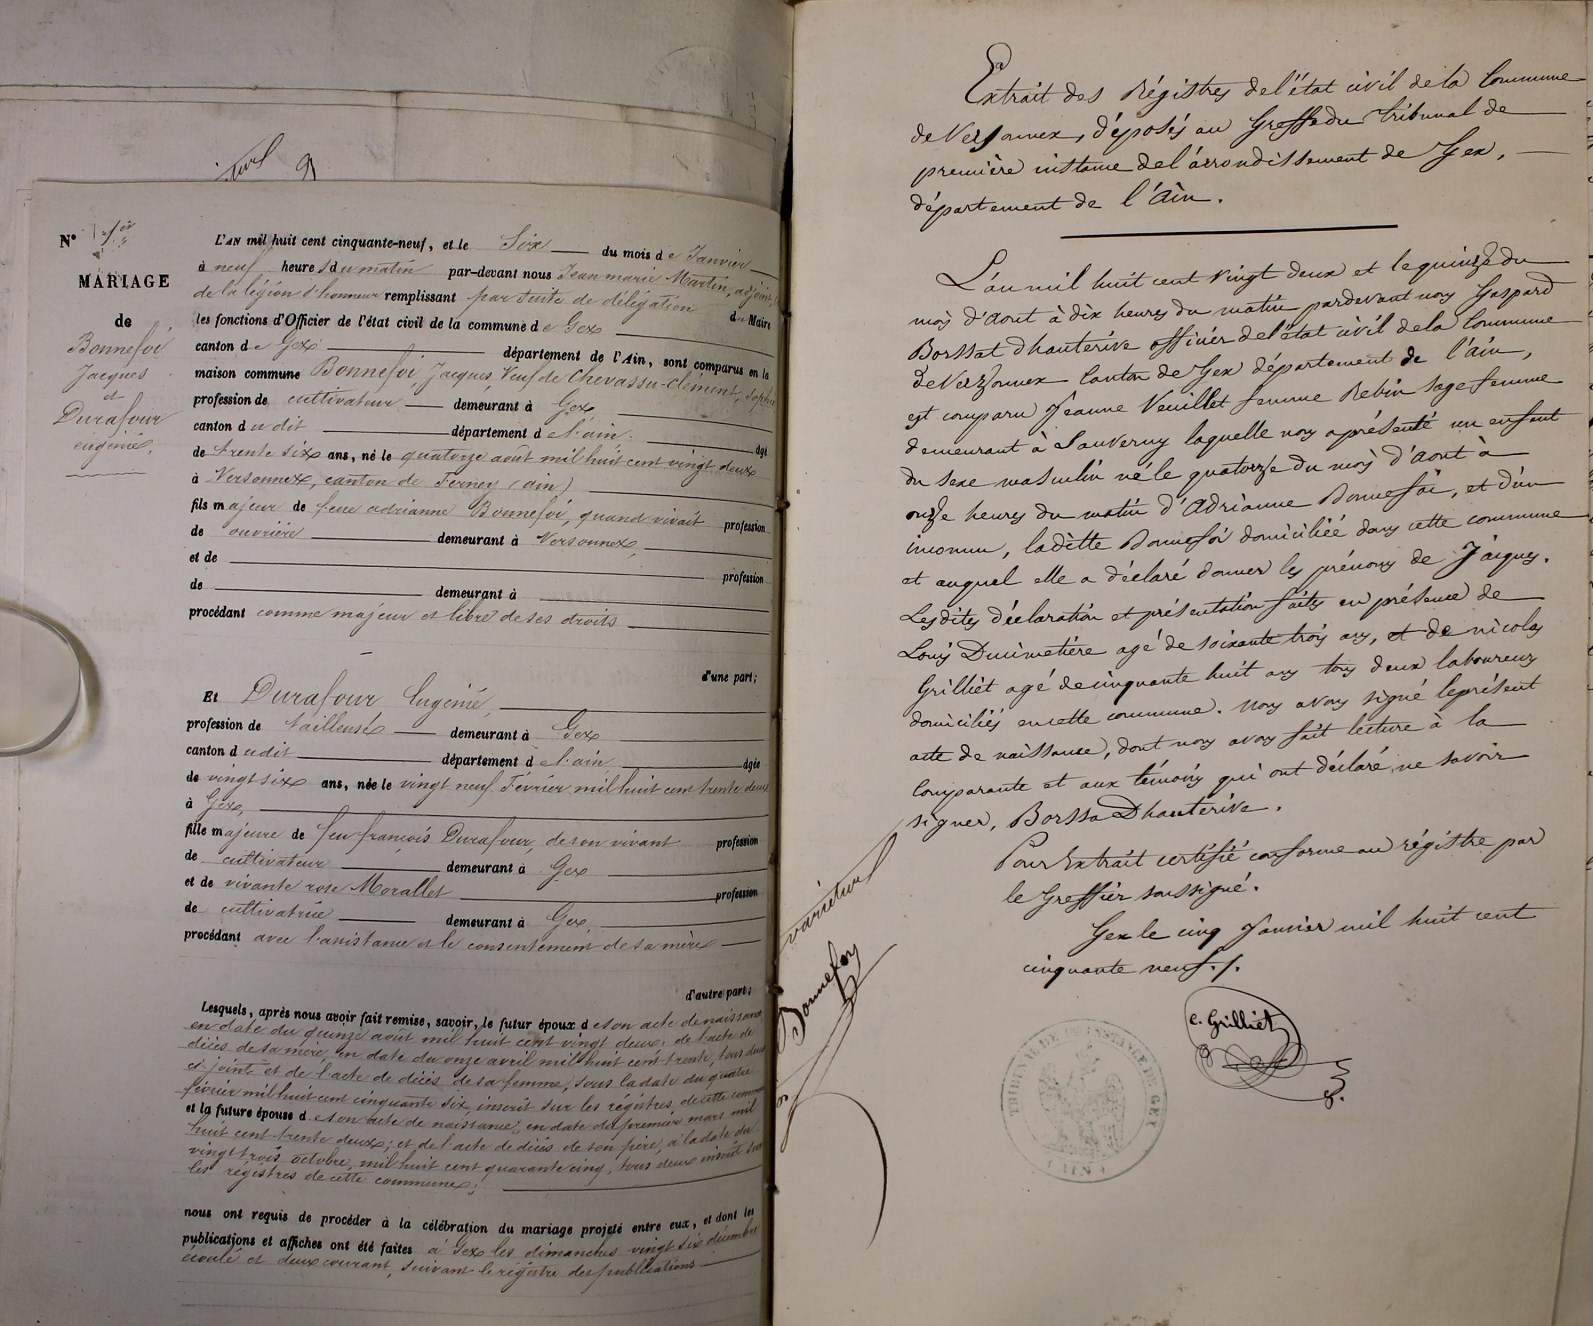 N° 1er
MARIAGE
de
Bonnefoi
Jacques
et
Durafour
eugénie,
L'AN mil huit cent cinquante-neuf, et le Six du mois de Janvier
à neuf heures du matin par-devant nous Jean marie Martin, adjoint,
de la légion d'honneur remplissant par suite de délégation du Maire
les fonctions d'Officier de l'état civil de la commune de Gex
canton de Gex département de l'Ain, sont comparus en la
maison commune Bonnefoi, Jacques, Veuf de Chevassu-Clément, Sophie
profession de cultivateur demeurant à Gex
canton du dit département de l'ain. âgé
de trente six ans, né le quatorze août mil huit cent vingt deux
à Versonnex, canton de Ferney (ain)
fils majeur de feue adrianne Bonnefoi, quand vivait profession
de ouvrière demeurant à Versonnex,
et de profession
de demeurant à
procédant comme majeur et libre de ses droits
d'une part;
Et Durafour Eugénie,
profession de tailleuse demeurant à Gex
canton du dit département de l'ain âgée
de vingt six ans, née le vingt neuf Février mil huit cent trente deux
à Gex,
fille majeure de feu françois Durafour, de son vivant profession
de cultivateur demeurant à Gex
et de vivante rose Morallet profession
de cultivatrice demeurant à Gex,
procédant avec l'assistance et le consentement de sa mère
d'autre part;
Lesquels, après nous avoir fait remise, savoir, le futur époux de son acte de naissance
en date du quinze août mil huit cent vingt deux; de l'acte de
décès de sa mère, en date du onze avril mil huit cent trente, tous deux
ci-joint et de l'acte de décès de sa femme, sous la date du quatre
février mil huit cent cinquante six, inscrit sur les régistres de cette commune
et la future épouse de son acte de naissance, en date du premier mars mil
huit cent trente deux; et de l'acte de décès de son père, à la date du
vingt trois octobre mil huit cent quarante cinq, tous deux inscrit sur
les régistres de cette commune;
nous ont requis de procéder à la célébration du mariage projeté entre eux, et dont les
publications et affiches ont été faites à Gex les dimanches vingt six décembre
écoulé et deux courant, suivant le régistre des publications
Extrait des Régistres de l'état civil de la Commune
de Versonnex, déposés au Greffe du Tribunal de
première instance de l'arrondissement de Gex,
département de l'Ain.
L'an mil huit cent vingt deux et le quinze du
mois d'aout à dix heures du matin pardevant nous Gaspard
Borssat dhauterive officier de l'état civil de la Commune
de Verzonnex Canton de Gex département de l'ain,
est comparu Jeanne Veuillet femme Rebin sage femme
demeurant à Sauverny laquelle nous a présenté un enfant
du sexe masculin né le quatorze du mois d'aout à
onze heures du matin d'Adrianne Bonnefoi, et d'un
inconnu, la dite Bonnefoi domiciliée dans cette commune
et auquel elle a déclaré donner les prénoms de Jacques.
Lesdites déclaration et présentation faites en présence de
Louis Ducimetière agé de soixante trois ans, et de nicolas
Grilliet agé de cinquante huit ans tous deux laboureurs
domiciliés en cette commune. nous avons signé le présent
acte de naissance, dont nous avons fait lecture à la
comparante et aux témoins qui ont déclaré ne savoir
signer, Borssa Dhauterive.
Pour Extrait certifié conforme au régistre par
le Greffier soussigné.
Gex le cinq Janvier mil huit cent
cinquante neuf./.
C. Grilliet
TRIBUNAL DE 1RE INSTANCE DE GEX
(AIN)
varietur
Bonnefoy